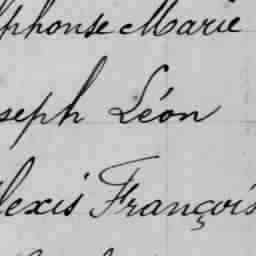 lphonse Marie
seph Léon
lexis François